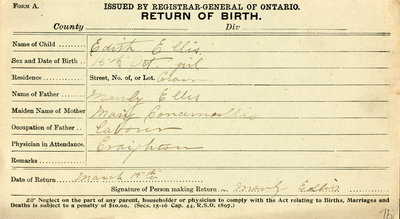 FORM A. ISSUED BY REGISTRAR-GENERAL OF ONTARIO.
RETURN OF BIRTH.
County Div
Name of Child Edith Ellis
Sex and Date of Birth 15th girl
Residence Street, No. of, or Lot.
Name of Father Ellis
Maiden Name of Mother Mary
Occupation of Father Laborer
Physician in Attendance. Creighton
Remarks
Date of Return March
Signature of Person making Return Ellis
Neglect on the part of any parent, householder or physician to comply with the Act relating to Births, Marriages and
Deaths is subject to a penalty of $10.00. (Secs. 15-16 Cap. 44. R.S.O. 1897.)